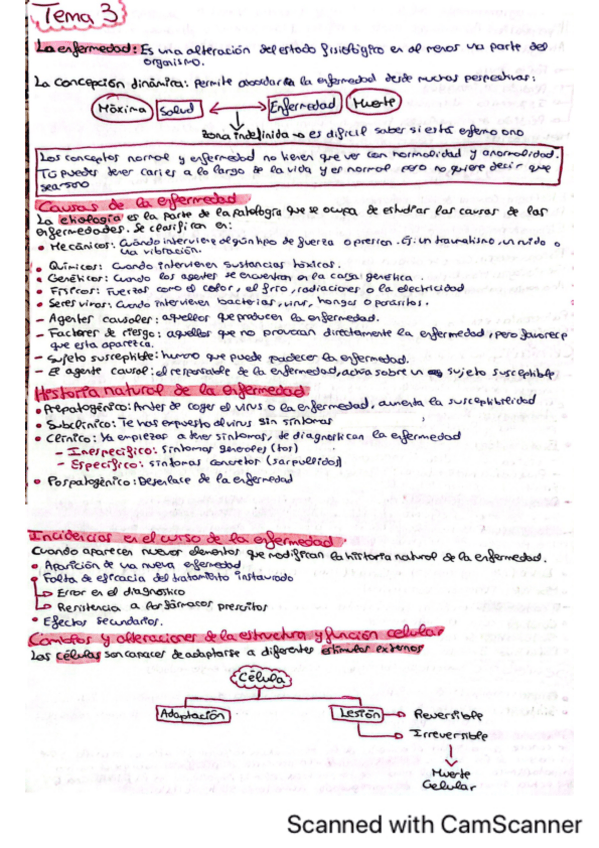 Tema 3
La enfermedad: Es una alteración del estado fisiológico en al menos una parte del
organismo.
La concepción dinámica: permite abordar la enfermedad desde muchas perspectivas:
Máxima Salud Enfermedad Muerte
zona indefinida → es difícil saber si está enfermo o no
Los conceptos normal y enfermedad no tienen que ver con normalidad y anormalidad.
Tú puedes tener caries a lo largo de la vida y es normal pero no quiere decir que
sea sano
Causas de la enfermedad
La etiología es la parte de la patología que se ocupa de estudiar las causas de las
enfermedades. Se clasifican en:
• Mecánicos: Cuándo interviene algún tipo de fuerza o presion. Ej: un traumatismo, un ruido o
una vibración.
• Químicos: Cuando intervienen sustancias tóxicas.
• Genéticos: Cuando los agentes se encuentran en la carga genética.
• Físicos: fuerzas como el calor, el frío, radiaciones o la electricidad
• Seres vivos: Cuando intervienen bacterias, virus, hongos o parásitos.
- Agentes causales: aquellos que producen la enfermedad.
- Factores de riesgo: aquellos que no provocan directamente la enfermedad, pero favorece
que esta aparezca.
- Sujeto susceptible: humano que puede padecer la enfermedad.
- El agente causal: el responsable de la enfermedad, actúa sobre un sujeto susceptible
Historia natural de la enfermedad
• Prepatogénico: Antes de coger el virus o la enfermedad, aumenta la susceptibilidad
• Subclínico: Te has expuesto al virus sin síntomas
• Clínico: Ya empiezas a tener síntomas, te diagnostican la enfermedad
- Inespecífico: Síntomas generales (tos)
- Específico: síntomas concretos (sarpullidos)
• Pospatogénico: Desenlace de la enfermedad
Incidencias en el curso de la enfermedad.
Cuando aparecen nuevos elementos que modifican la historia natural de la enfermedad.
• Aparición de una nueva enfermedad
• Falta de eficacia del tratamiento instaurado
↳ Error en el diagnóstico
↳ Resistencia a fármacos prescritos
• Efectos secundarios.
y alteraciones de la estructura y función celular
Las células son capaces de adaptarse a diferentes estímulos externos
Célula
Adaptación Lesión → Reversible
→ Irreversible
↓
Muerte
Celular
Scanned with CamScanner